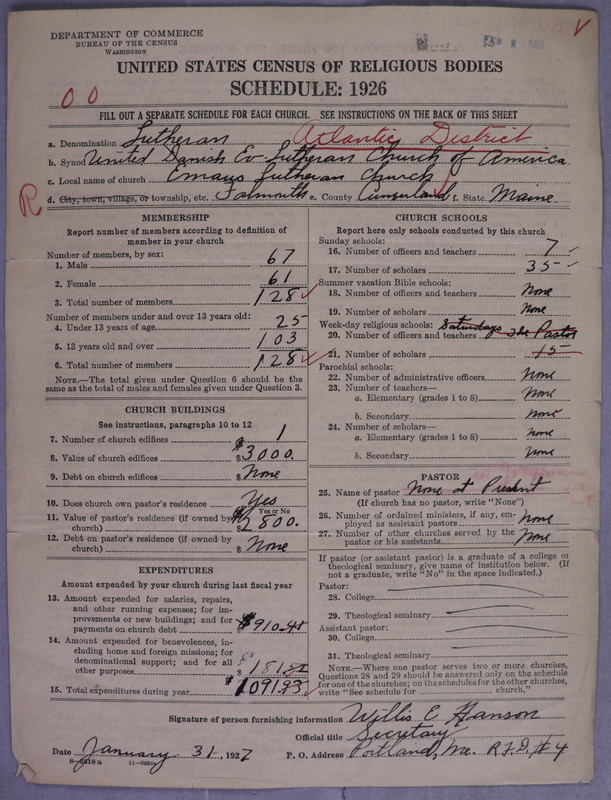 DEPARTMENT OF COMMERCE
BUREAU OF THE CENSUS
WASHINGTON
UNITED STATES CENSUS OF RELIGIOUS BODIES
SCHEDULE: 1926
0 0
FILL OUT A SEPARATE SCHEDULE FOR EACH CHURCH. SEE INSTRUCTIONS ON THE BACK OF THIS SHEET
a. Denomination Lutheran Atlantic District
b. Synod United Danish Ev. Lutheran Church of America
c. Local name of church Emaus Lutheran Church
R
d. City, town, village, or township, etc. Falmouth e. County Cumberland f. State Maine.
MEMBERSHIP
Report number of members according to definition of
member in your church
Number of members, by sex:
1. Male 67
2. Female 61
3. Total number of members 128
Number of members under and over 13 years old:
4. Under 13 years of age 25
5. 13 years old and over 103
6. Total number of members 128
NOTE.—The total given under Question 6 should be the
same as the total of males and females given under Question 3.
CHURCH BUILDINGS
See instructions, paragraphs 10 to 12
7. Number of church edifices 1
8. Value of church edifices $3000.
9. Debt on church edifices $ None
10. Does church own pastor's residence Yes
Yes or No
11. Value of pastor's residence (if owned by
church) $2800.
12. Debt on pastor's residence (if owned by
church) $ None
EXPENDITURES
Amount expended by your church during last fiscal year
13. Amount expended for salaries, repairs,
and other running expenses; for im-
provements or new buildings; and for
payments on church debt $910.41
14. Amount expended for benevolences, in-
cluding home and foreign missions; for
denominational support; and for all
other purposes $181.52
15. Total expenditures during year $1091.93
CHURCH SCHOOLS
Report here only schools conducted by this church
Sunday schools:
16. Number of officers and teachers 7
17. Number of scholars 35
Summer vacation Bible schools:
18. Number of officers and teachers None
19. Number of scholars None
Week-day religious schools: Saturdays
20. Number of officers and teachers The Pastor
21. Number of scholars 15
Parochial schools:
22. Number of administrative officers None
23. Number of teachers—
a. Elementary (grades 1 to 8) None
b. Secondary None
24. Number of scholars—
a. Elementary (grades 1 to 8) None
b. Secondary None
PASTOR
25. Name of pastor None at Present
(If church has no pastor, write "None")
26. Number of ordained ministers, if any, em-
ployed as assistant pastors None
27. Number of other churches served by the
pastor or his assistants None
If pastor (or assistant pastor) is a graduate of a college or
theological seminary, give name of institution below. (If
not a graduate, write "No" in the space indicated.)
Pastor:
28. College
29. Theological seminary
Assistant pastor:
30. College
31. Theological seminary
NOTE.—Where one pastor serves two or more churches,
Questions 28 and 29 should be answered only on the schedule
for one of the churches; on the schedules for the other churches,
write "See schedule for church."
Signature of person furnishing information Willis E Hanson
Official title Secretary
Date January 31, 1927 P. O. Address Portland, Me. R.F.D. #4